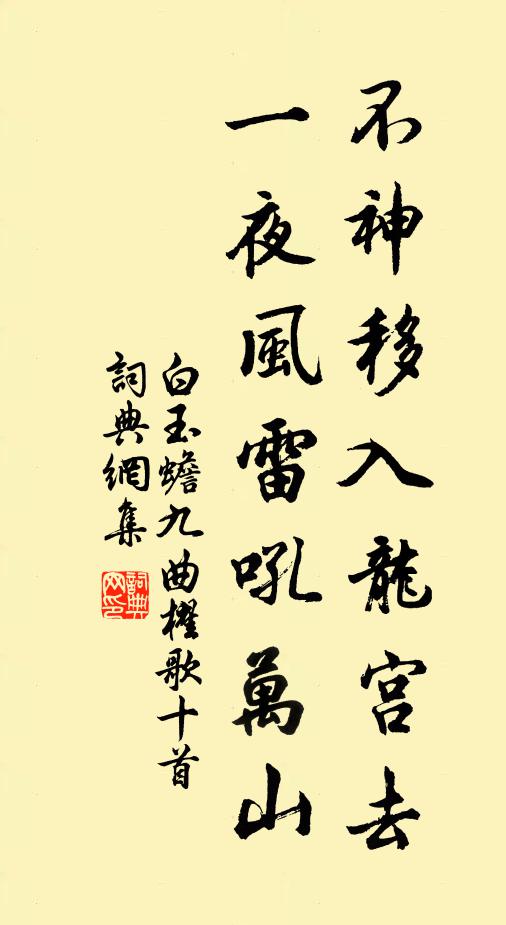 不神移入龍宮去
一夜風雷吼萬山
白玉蟾九曲櫂歌十首
詞典網集
詞典网印